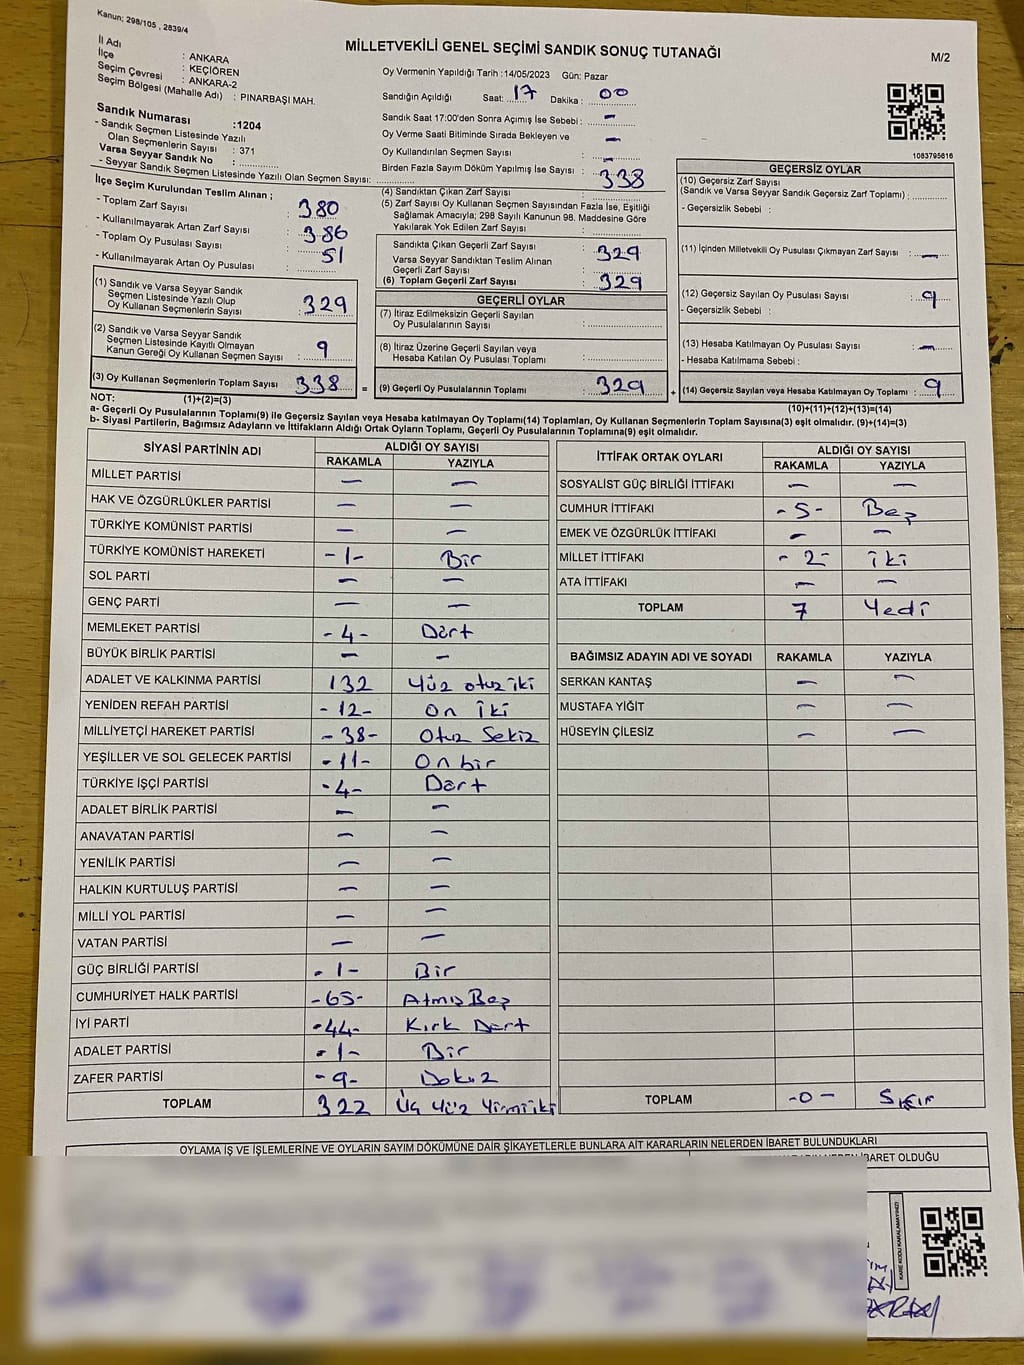 Kanun; 298/105 , 2839/4
MİLLETVEKİLİ GENEL SEÇİMİ SANDIK SONUÇ TUTANAĞI
M/2
İl Adı : ANKARA
İlçe : KEÇİÖREN
Seçim Çevresi : ANKARA-2
Seçim Bölgesi (Mahalle Adı) : PINARBAŞI MAH.
Sandık Numarası :1204
- Sandık Seçmen Listesinde Yazılı
Olan Seçmenlerin Sayısı : 371
Varsa Seyyar Sandık No :
- Seyyar Sandık Seçmen Listesinde Yazılı Olan Seçmen Sayısı:
Oy Vermenin Yapıldığı Tarih :14/05/2023 Gün: Pazar
Sandığın Açıldığı Saat: 17 Dakika : 00
Sandık Saat 17:00'den Sonra Açımış İse Sebebi : -
Oy Verme Saati Bitiminde Sırada Bekleyen ve
Oy Kullandırılan Seçmen Sayısı : -
Birden Fazla Sayım Döküm Yapılmış İse Sayısı : -
1083795616
İlçe Seçim Kurulundan Teslim Alınan ;
- Toplam Zarf Sayısı : 380
- Kullanılmayarak Artan Zarf Sayısı
- Toplam Oy Pusulası Sayısı : 386
- Kullanılmayarak Artan Oy Pusulası : 51
(1) Sandık ve Varsa Seyyar Sandık
Seçmen Listesinde Yazılı Olup
Oy Kullanan Seçmenlerin Sayısı : 329
(2) Sandık ve Varsa Seyyar Sandık
Seçmen Listesinde Kayıtlı Olmayan
Kanun Gereği Oy Kullanan Seçmen Sayısı : 9
(3) Oy Kullanan Seçmenlerin Toplam Sayısı 338 =
(4) Sandıktan Çıkan Zarf Sayısı : 338
(5) Zarf Sayısı Oy Kullanan Seçmen Sayısından Fazla İse, Eşitliği
Sağlamak Amacıyla; 298 Sayılı Kanunun 98. Maddesine Göre
Yakılarak Yok Edilen Zarf Sayısı :
Sandıkta Çıkan Geçerli Zarf Sayısı : 329
Varsa Seyyar Sandıktan Teslim Alınan
Geçerli Zarf Sayısı :
(6) Toplam Geçerli Zarf Sayısı : 329
GEÇERLİ OYLAR
(7) İtiraz Edilmeksizin Geçerli Sayılan
Oy Pusulalarının Sayısı :
(8) İtiraz Üzerine Geçerli Sayılan veya
Hesaba Katılan Oy Pusulası Toplamı :
(9) Geçerli Oy Pusulalarının Toplamı : 329 +
GEÇERSİZ OYLAR
(10) Geçersiz Zarf Sayısı
(Sandık ve Varsa Seyyar Sandık Geçersiz Zarf Toplamı) :
- Geçersizlik Sebebi :
(11) İçinden Milletvekili Oy Pusulası Çıkmayan Zarf Sayısı : -
(12) Geçersiz Sayılan Oy Pusulası Sayısı : 9
- Geçersizlik Sebebi :
(13) Hesaba Katılmayan Oy Pusulası Sayısı : -
- Hesaba Katılmama Sebebi :
(14) Geçersiz Sayılan veya Hesaba Katılmayan Oy Toplamı : 9
NOT: (1)+(2)=(3)
(10)+(11)+(12)+(13)=(14)
a- Geçerli Oy Pusulalarının Toplamı(9) ile Geçersiz Sayılan veya Hesaba katılmayan Oy Toplamı(14) Toplamları, Oy Kullanan Seçmenlerin Toplam Sayısına(3) eşit olmalıdır. (9)+(14)=(3)
b- Siyasi Partilerin, Bağımsız Adayların ve İttifakların Aldığı Ortak Oyların Toplamı, Geçerli Oy Pusulalarının Toplamına(9) eşit olmalıdır.
SİYASİ PARTİNİN ADI ALDIĞI OY SAYISI
RAKAMLA YAZIYLA
MİLLET PARTİSİ - -
HAK VE ÖZGÜRLÜKLER PARTİSİ - -
TÜRKİYE KOMÜNİST PARTİSİ - -
TÜRKİYE KOMÜNİST HAREKETİ -1- Bir
SOL PARTİ - -
GENÇ PARTİ - -
MEMLEKET PARTİSİ -4- Dört
BÜYÜK BİRLİK PARTİSİ - -
ADALET VE KALKINMA PARTİSİ 132 Yüz otuz iki
YENİDEN REFAH PARTİSİ -12- On İki
MİLLİYETÇİ HAREKET PARTİSİ -38- Otuz Sekiz
YEŞİLLER VE SOL GELECEK PARTİSİ -11- On bir
TÜRKİYE İŞÇİ PARTİSİ -4- Dört
ADALET BİRLİK PARTİSİ - -
ANAVATAN PARTİSİ - -
YENİLİK PARTİSİ - -
HALKIN KURTULUŞ PARTİSİ - -
MİLLİ YOL PARTİSİ - -
VATAN PARTİSİ - -
GÜÇ BİRLİĞİ PARTİSİ -1- Bir
CUMHURİYET HALK PARTİSİ -65- Atmış Beş
İYİ PARTİ -44- Kırk Dört
ADALET PARTİSİ -1- Bir
ZAFER PARTİSİ -9- Dokuz
TOPLAM 322 Üç Yüz Yirmi iki
İTTİFAK ORTAK OYLARI ALDIĞI OY SAYISI
RAKAMLA YAZIYLA
SOSYALİST GÜÇ BİRLİĞİ İTTİFAKI - -
CUMHUR İTTİFAKI -5- Beş
EMEK VE ÖZGÜRLÜK İTTİFAKI - -
MİLLET İTTİFAKI -2- iki
ATA İTTİFAKI - -
TOPLAM 7 Yedi
BAĞIMSIZ ADAYIN ADI VE SOYADI RAKAMLA YAZIYLA
SERKAN KANTAŞ - -
MUSTAFA YİĞİT - -
HÜSEYİN ÇİLESİZ - -
TOPLAM -0- Sıfır
OYLAMA İŞ VE İŞLEMLERİNE VE OYLARIN SAYIM DÖKÜMÜNE DAİR ŞİKAYETLERLE BUNLARA AİT KARARLARIN NELERDEN İBARET BULUNDUKLARI
İBARET OLDUĞU
KARE KODU KARALAMAYINIZ!